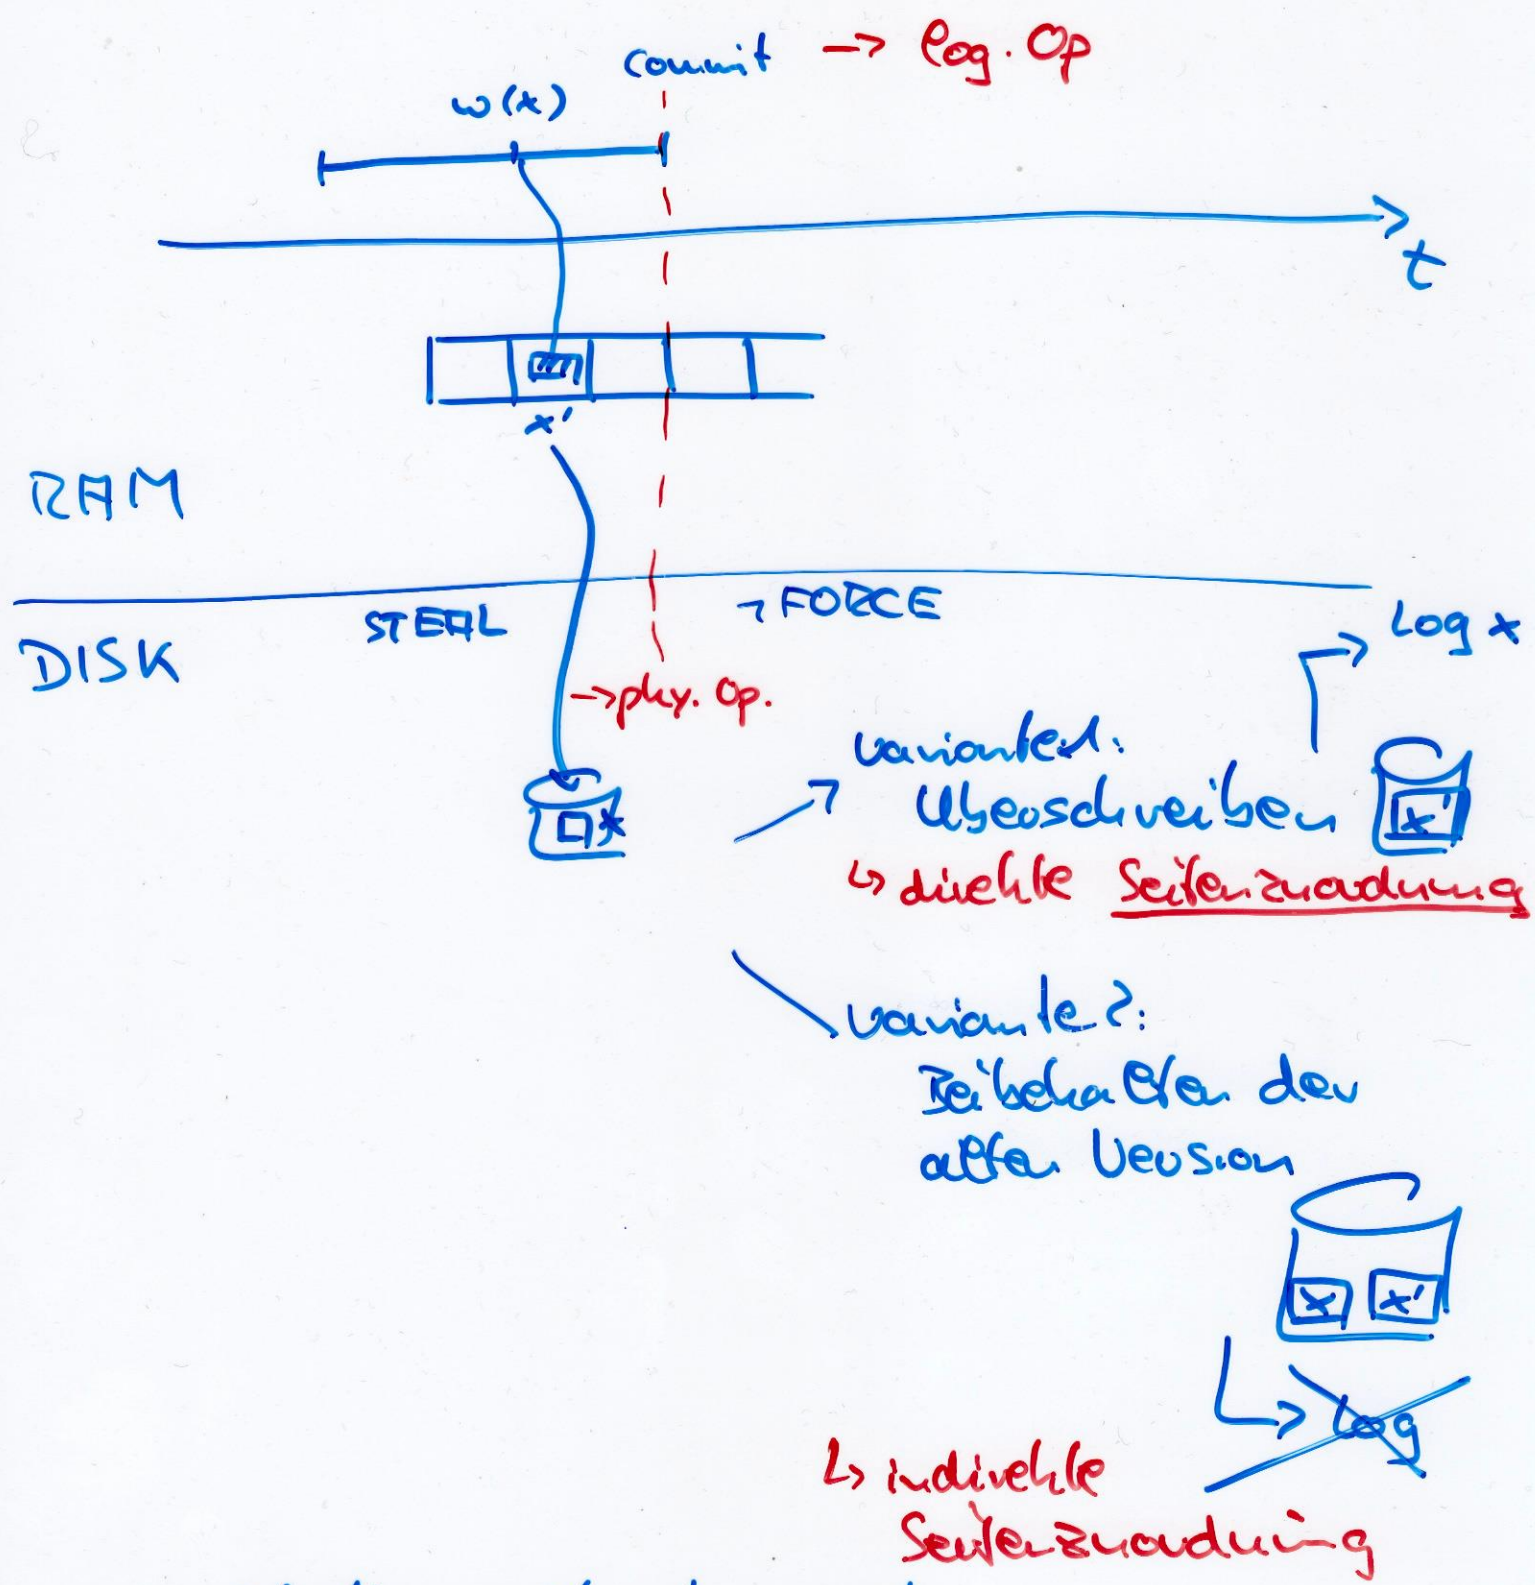 commit → log. Op
w(x)
t
x'
RAM
STEAL
¬FORCE
DISK
Log x
→ phy. Op.
Variante 1:
Überschreiben
x'
↳ direkte Seitenzuordnung
x
Variante 2:
Beibehalten der
alten Version
x x'
Log
↳ indirekte
Seitenzuordnung